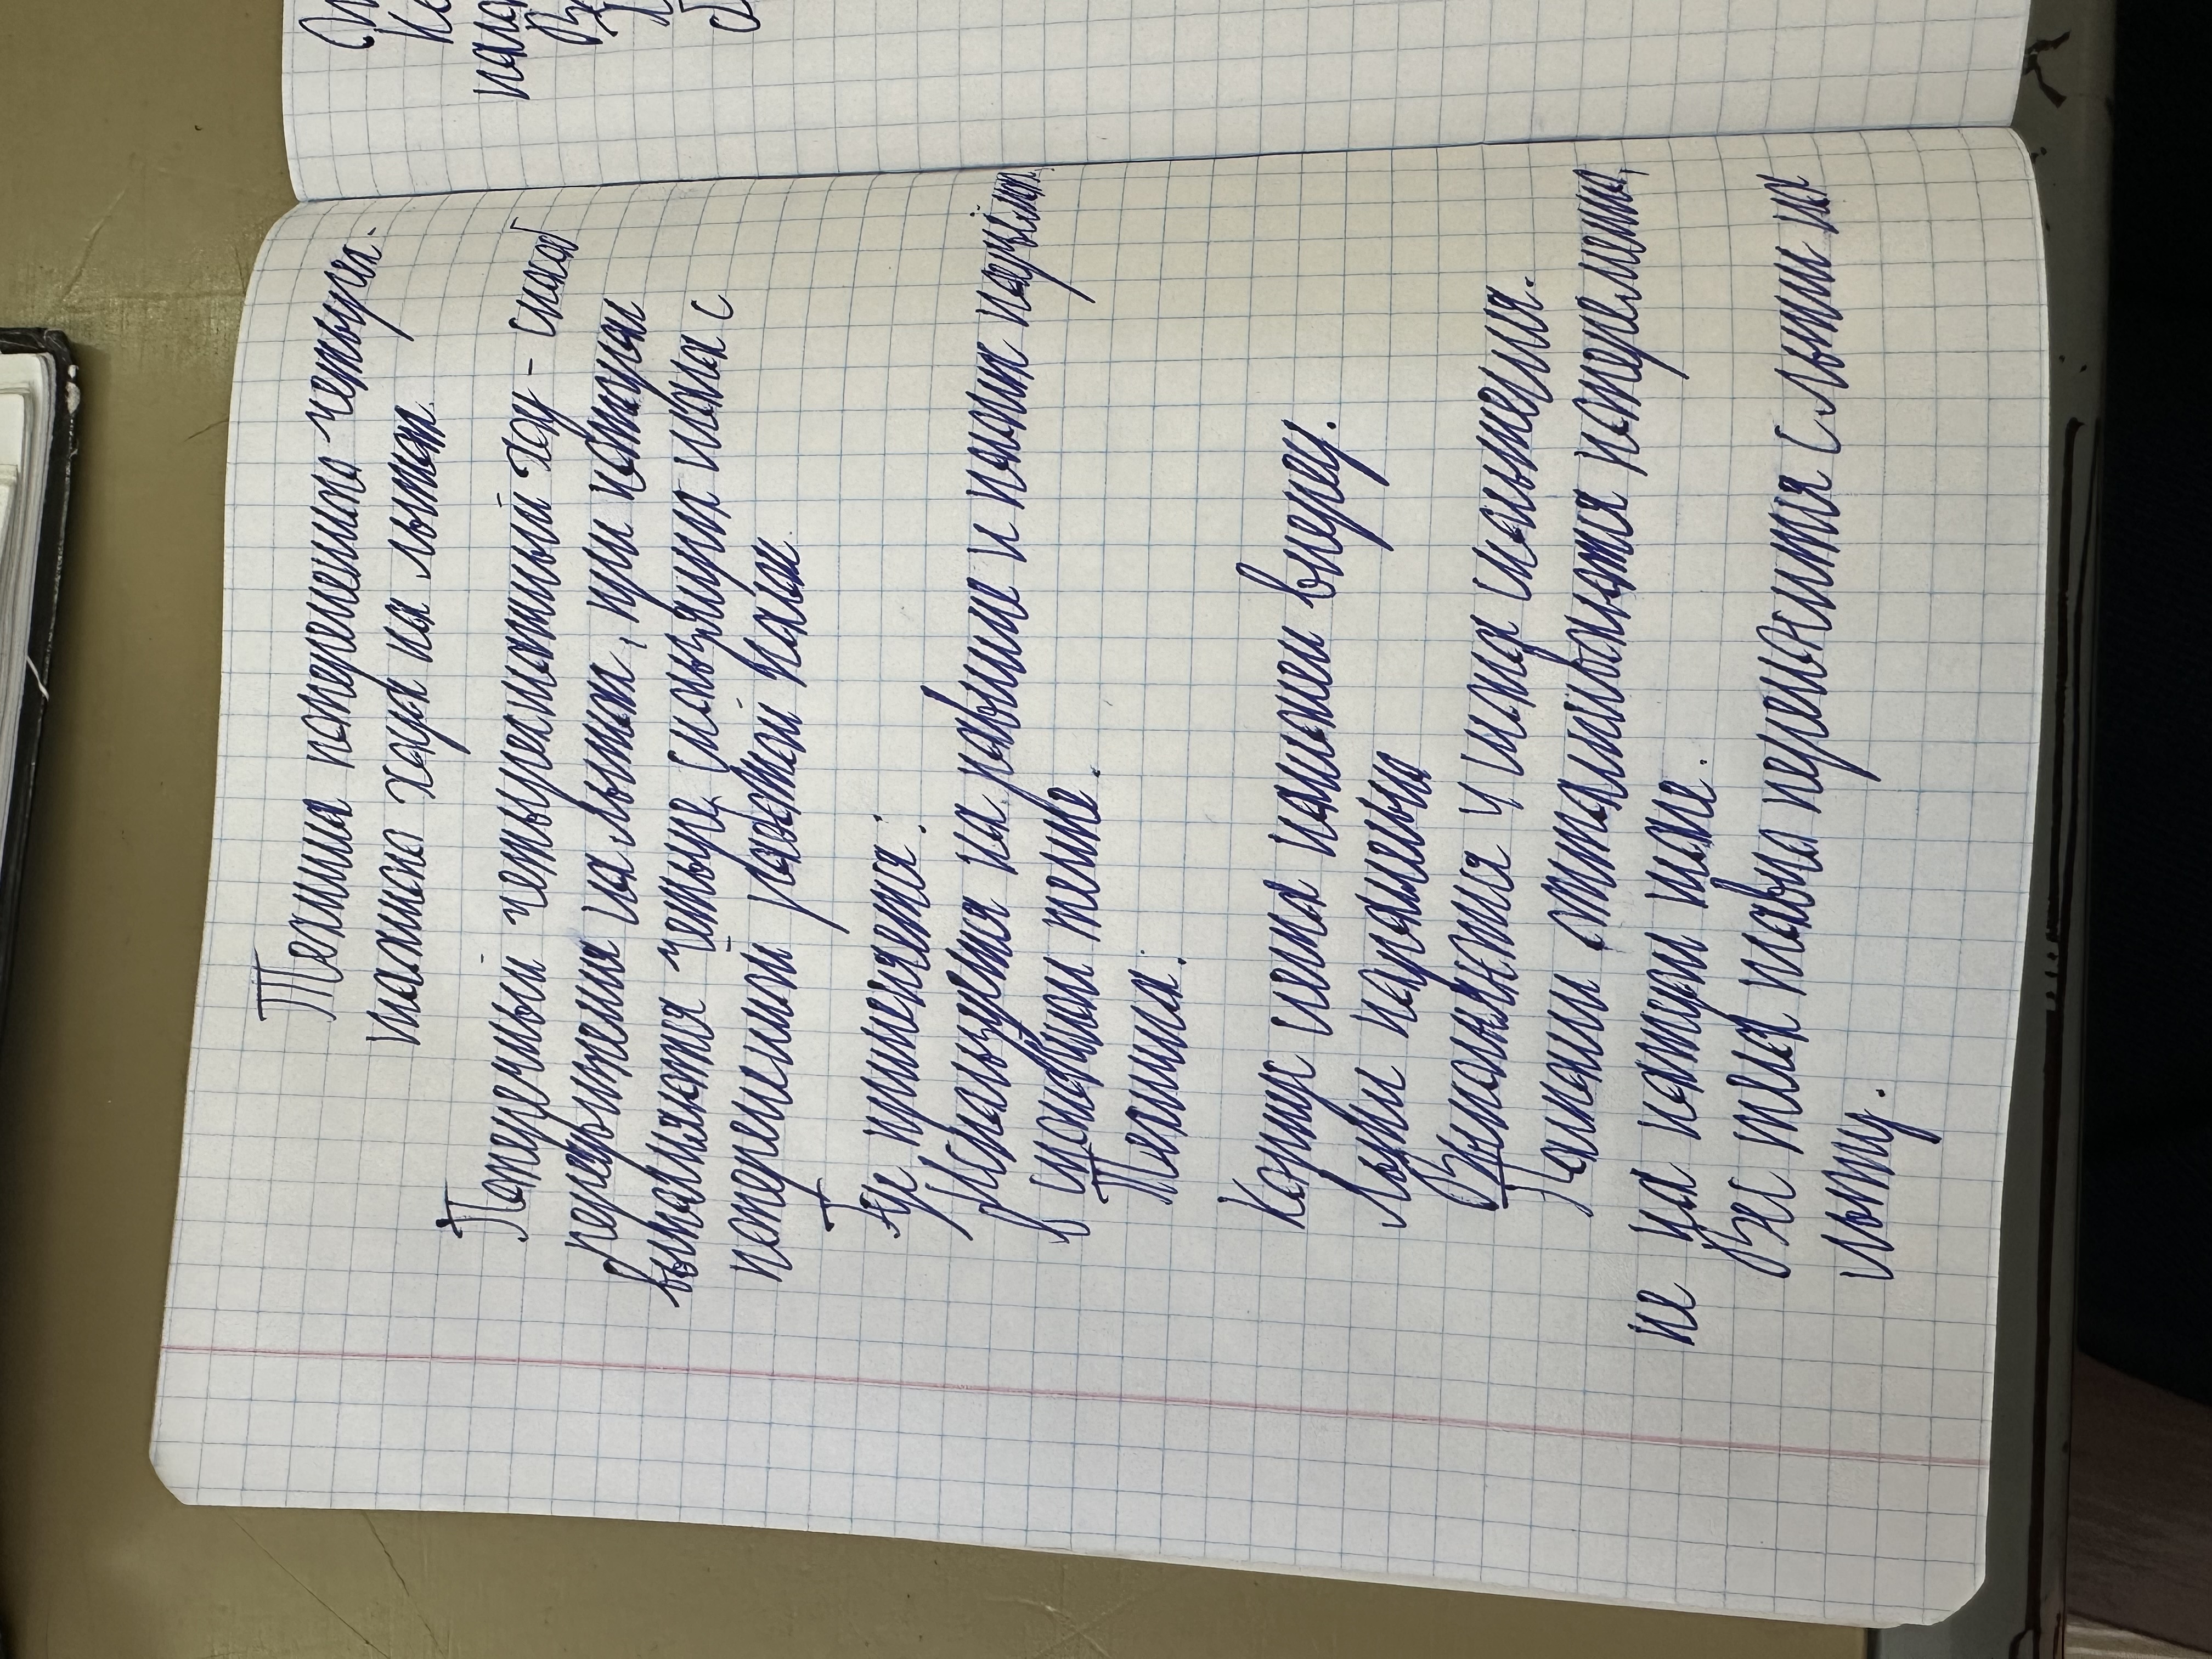 Техника попеременного четырех-
шажного хода на лыжах.
Попеременный четырехшажный ход - способ
передвижения на лыжах, при котором
выполняются четыре скользящих шага с
попеременной работой палок.
Где применяется:
Используется на равнине и пологих подъёмах.
в спокойном темпе.
Техника:
Корпус слегка наклонен вперед.
Лыжи параллельно
Выполняются 4 шага скольжения.
Палками отталкиваются попеременно,
не на каждом шаге.
Вес тела плавно переносится с лыжи на
лыжу.